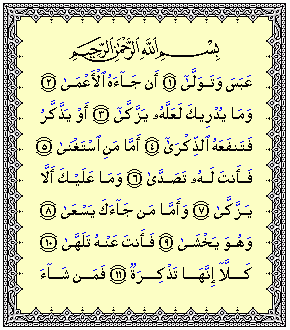 بِسْمِ اللَّهِ الرَّحْمَٰنِ الرَّحِيمِ
عَبَسَ وَتَوَلَّىٰٓ ﴿١﴾ أَن جَآءَهُ الْأَعْمَىٰ ﴿٢﴾
وَمَا يُدْرِيكَ لَعَلَّهُۥ يَزَّكَّىٰٓ ﴿٣﴾ أَوْ يَذَّكَّرُ
فَتَنفَعَهُ الذِّكْرَىٰٓ ﴿٤﴾ أَمَّا مَنِ اسْتَغْنَىٰ ﴿٥﴾
فَأَنتَ لَهُۥ تَصَدَّىٰ ﴿٦﴾ وَمَا عَلَيْكَ أَلَّا
يَزَّكَّىٰ ﴿٧﴾ وَأَمَّا مَن جَآءَكَ يَسْعَىٰ ﴿٨﴾
وَهُوَ يَخْشَىٰ ﴿٩﴾ فَأَنتَ عَنْهُ تَلَهَّىٰ ﴿١٠﴾
كَلَّآ إِنَّهَا تَذْكِرَةٌ ﴿١١﴾ فَمَن شَآءَ